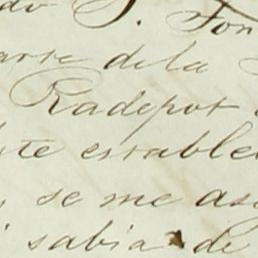 do S. Fon
arse dela
Radepot
ste estable
, se me as
sabia de